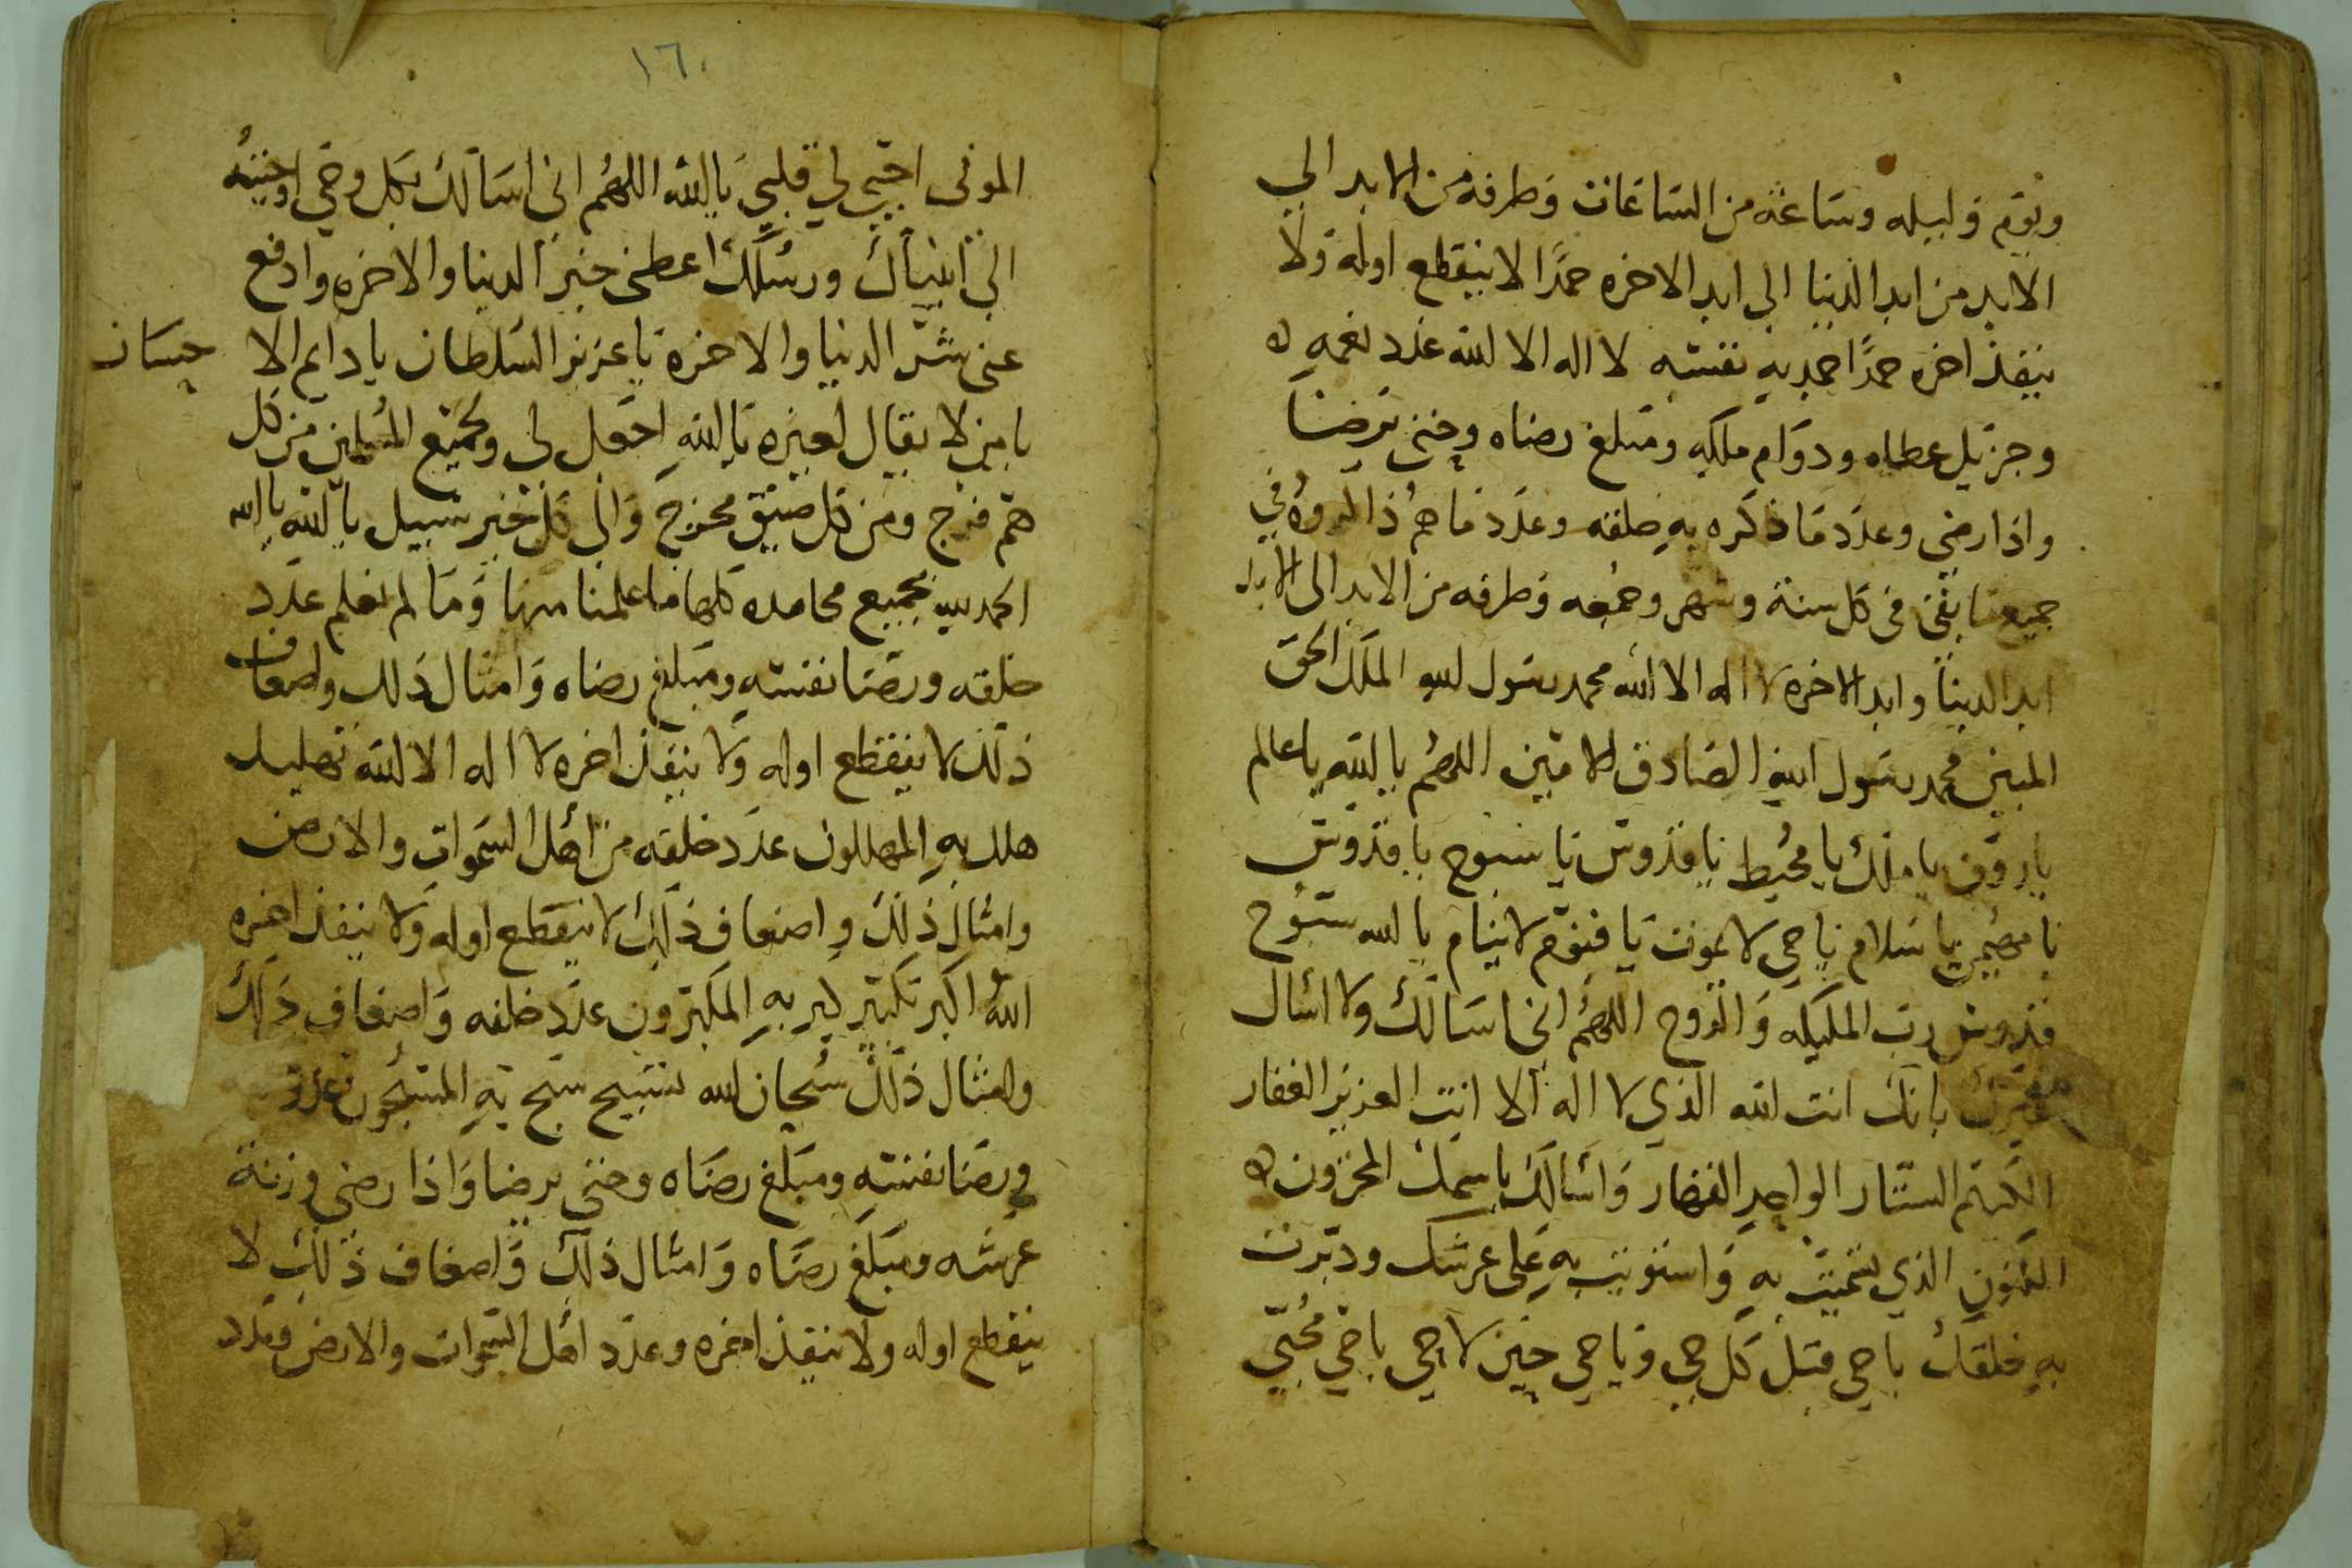 ويوم وليله وساعة من الساعات وطرفه من الابد الى
الابد من ابد الدنيا الى ابد الاخره حمدًا لا ينقطع اوله ولا
ينفذ اخره حمدًا حمد به نفسه لا اله الا الله عدد نعمه
وجزيل عطاه ودوام ملكه ومبلغ رضاه وحتى يرضا
واذا رضى وعدد ما ذكره به خلقه وعدد ما هم ذاكروه في
جميع ما بقى فى كل سنة وشهر وجمعه وطرفه من الابد الى الابد
ابد الدنيا وابد الاخره لا اله الا الله محمد رسول الله الملك الحق
المبين محمد رسول الله الصادق الامين اللهم يا الله يا عالم
يا روف يا ملك يا محيط يا قدوس يا سبوح يا قدوس
يا مهيمن يا سلام يا حى لا يموت يا قيوم لا ينام يا الله سبوح
قدوس رب المليكه والروح اللهم انى اسالك ولا اسال
غيرك بانك انت الله الذي لا اله الا انت العزيز الغفار
الستار الواحد القهار واسالك باسمك المخزون
المكنون الذي تسميت به واستويت به على عرشك ودبرت
به خلقك يا حى قبل كل حى ويا حى حين لا حى يا حي محيي
١٦٠
الموتى احيي لي قلبي يا الله اللهم انى اسالك بكل وحي اوحيته
الى انبياك ورسلك اعطنى خير الدنيا والاخره وادفع
عنى شر الدنيا والاخرة يا عزيز السلطان يا دايم الا
حسان
يا من لا يقال لغيره يا الله اجعل لى ولجميع المسلمين من كل
هم فرج ومن كل ضيق مخرج والى كل خير سبيل يا الله يا الله
الحمد لله بجميع محامده كلها ما علمنا منها وما لم نعلم عدد
خلقه ورضا نفسه ومبلغ رضاه وامثال ذلك واضعاف
ذلك لا ينقطع اوله ولا ينفذ اخره لا اله الا الله تهليل
هلل به المهللون عدد خلقه من اهل السموات والارض
وامثال ذلك واضعاف ذلك لا ينقطع اوله ولا ينفذ اخره
الله اكبر تكبير كبر به المكبرون عدد خلقه واضعاف ذلك
وامثال ذلك سبحان الله تسبيح سبح به المسبحون
ورضا نفسه ومبلغ رضاه وحتى يرضا واذا رضى وزنة
عرشه ومبلغ رضاه وامثال ذلك واضعاف ذلك لا
ينقطع اوله ولا ينفذ اخره وعدد اهل السموات والارض وعدد